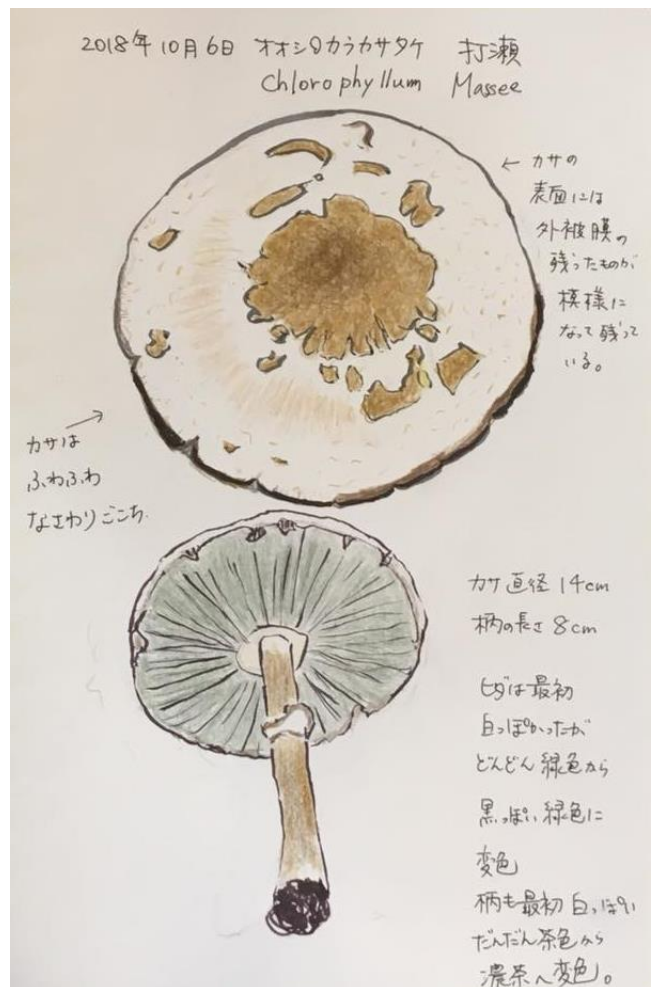 2018年10月6日 オオシロカラカサタケ 打瀬
Chlorophyllum Massee
← カサの
表面には
外被膜の
残ったものが
模様に
なって残って
いる。
カサは
ふわふわ
なさわりごこち.
カサ直径 14cm
柄の長さ 8cm
ヒダは最初
白っぽかったが
どんどん緑色から
黒っぽい緑色に
変色
柄も最初白っぽい
だんだん茶色から
濃茶へ変色。